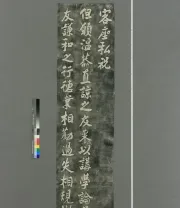 客座私祝
但願溫恭直諒之友來此講學論道
友謙和之行德業相勸過失相規